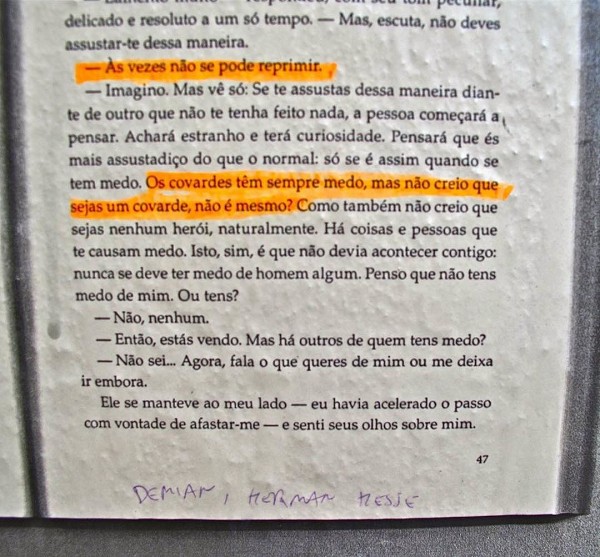 — Lamento muito — respondeu, com seu tom peculiar,
delicado e resoluto a um só tempo. — Mas, escuta, não deves
assustar-te dessa maneira.
— Às vezes não se pode reprimir.
— Imagino. Mas vê só: Se te assustas dessa maneira dian-
te de outro que não te tenha feito nada, a pessoa começará a
pensar. Achará estranho e terá curiosidade. Pensará que és
mais assustadiço do que o normal: só se é assim quando se
tem medo. Os covardes têm sempre medo, mas não creio que
sejas um covarde, não é mesmo? Como também não creio que
sejas nenhum herói, naturalmente. Há coisas e pessoas que
te causam medo. Isto, sim, é que não devia acontecer contigo:
nunca se deve ter medo de homem algum. Penso que não tens
medo de mim. Ou tens?
— Não, nenhum.
— Então, estás vendo. Mas há outros de quem tens medo?
— Não sei... Agora, fala o que queres de mim ou me deixa
ir embora.
Ele se manteve ao meu lado — eu havia acelerado o passo
com vontade de afastar-me — e senti seus olhos sobre mim.
47
DEMIAN, HERMAN HESSE